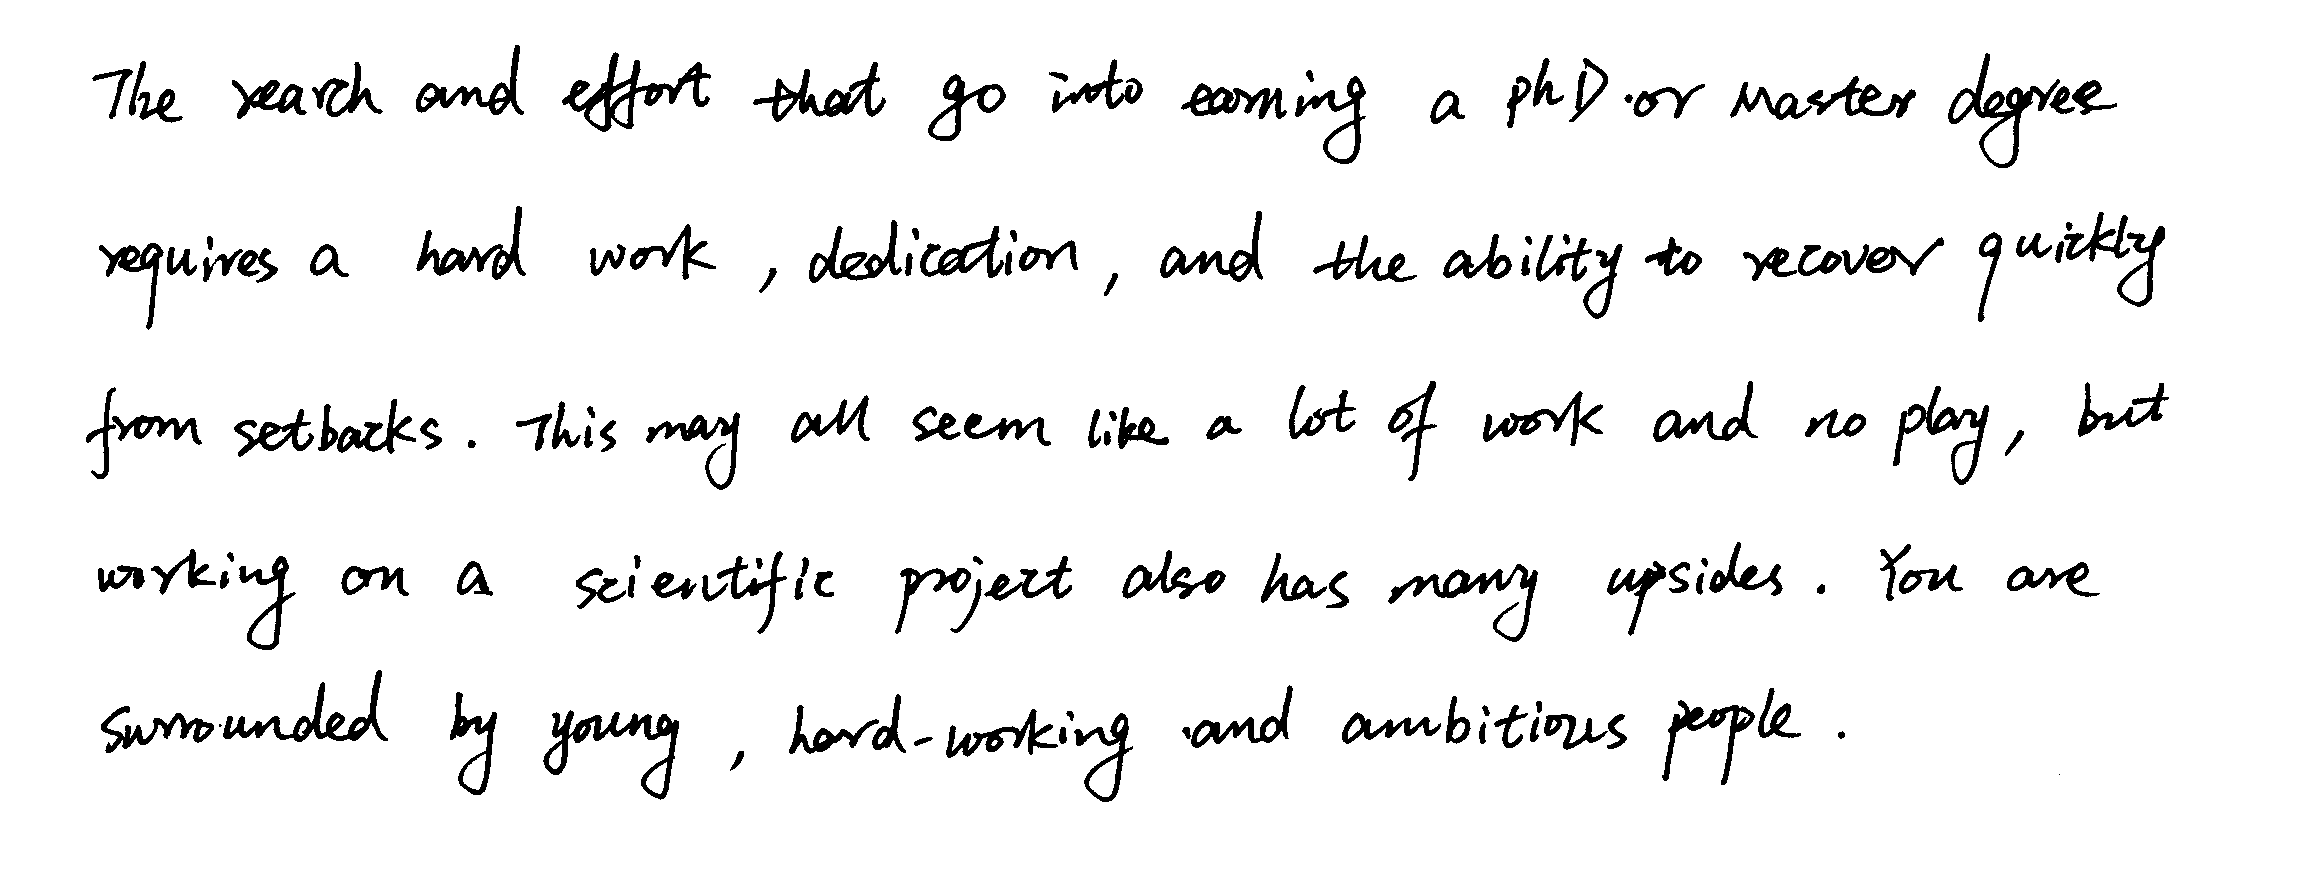 The rearch and effort that go into earning a phD or Master degree
requires a hard work, dedication, and the ability to recover quickly
from setbacks. This may all seem like a lot of work and no play, but
working on a scientific project also has many upsides. You are
surrounded by young, hard-working and ambitious people.